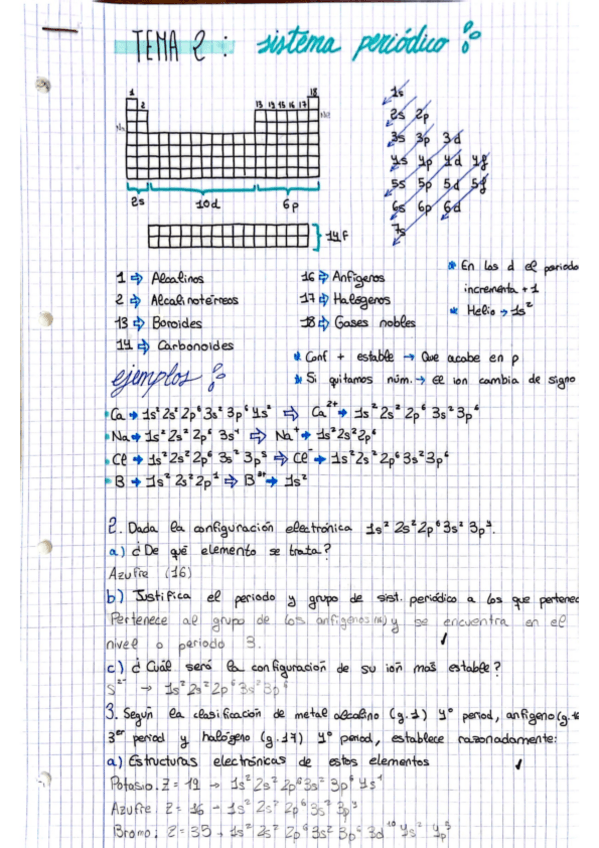 TEMA 2: sistema periódico
1 18
2 13 14 15 16 17
Na Ne
2s 10d 6p
14f
1s
2s 2p
3s 3p 3d
4s 4p 4d 4f
5s 5p 5d 5f
6s 6p 6d
7s
1 ⇨ Alcalinos
2 ⇨ Alcalinotérreos
13 ⇨ Boroides
14 ⇨ Carbonoides
16 ⇨ Anfígeros
17 ⇨ Halógeros
18 ⇨ Gases nobles
* En los d el periodo
incrementa + 1
* Helio → 1s²
* Conf + estable → Que acabe en p
* Si quitamos núm. → el ion cambia de signo
ejemplos
Ca → 1s² 2s² 2p⁶ 3s² 3p⁶ 4s² ⇨ Ca²⁺ → 1s² 2s² 2p⁶ 3s² 3p⁶
Na → 1s² 2s² 2p⁶ 3s¹ ⇨ Na⁺ → 1s² 2s² 2p⁶
Cl → 1s² 2s² 2p⁶ 3s² 3p⁵ ⇨ Cl⁻ → 1s² 2s² 2p⁶ 3s² 3p⁶
B → 1s² 2s² 2p¹ ⇨ B³⁺ → 1s²
2. Dada la configuración electrónica 1s² 2s² 2p⁶ 3s² 3p³.
a) ¿De qué elemento se trata?
Azufre (16)
b) Justifica el periodo y grupo de sist. periódico a los que pertenec
Pertenece al grupo de los anfígenos (16) y se encuentra en el
nivel o periodo 3.
c) ¿Cuál será la configuración de su ión más estable?
S²⁻ → 1s² 2s² 2p⁶ 3s² 3p⁶
3. Según la clasificación de metal alcalino (g.1) 4º period, anfígeno (g.
3er period y halógeno (g.17) 4º period, establece razonadamente:
a) Estructuras electrónicas de estos elementos
Potasio: Z = 19 → 1s² 2s² 2p⁶ 3s² 3p⁶ 4s¹
Azufre: Z = 16 - 1s² 2s² 2p⁶ 3s² 3p³
Bromo: Z = 35 - 1s² 2s² 2p⁶ 3s² 3p⁶ 3d¹⁰ 4s² 4p⁵